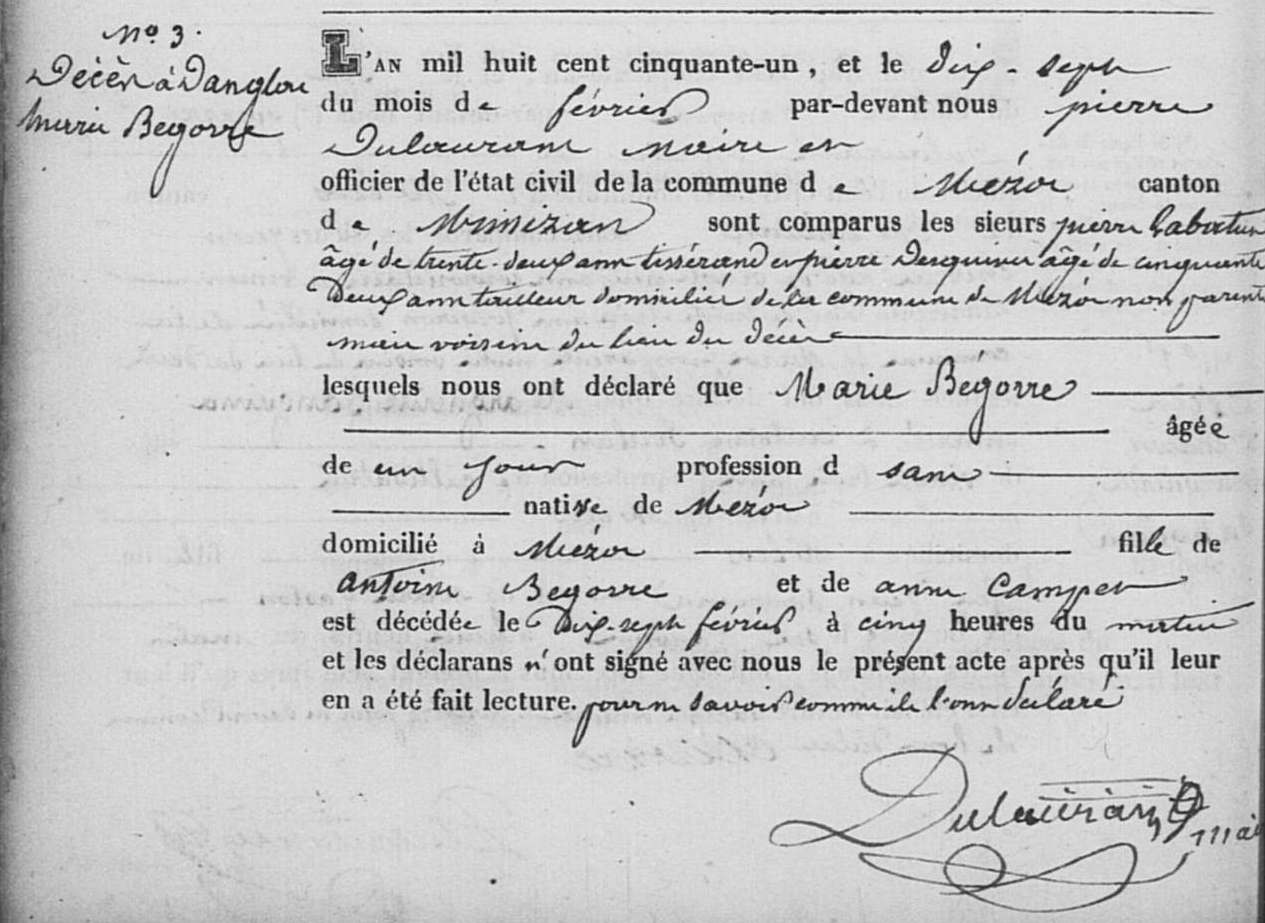 No 3.
Décès à Danglou
Marie Begorre
L'AN mil huit cent cinquante-un, et le Dix-sept
du mois de février par-devant nous pierre
Dulaurans maire et
officier de l'état civil de la commune de Mézos canton
de Mimizan sont comparus les sieurs pierre Labatut
âgé de trente-deux ans tissérand et pierre Desquines âgé de cinquante
Deux ans tailleur domicilié de la commune de Mézos non parents
mais voisins du lieu du décès
lesquels nous ont déclaré que Marie Bégorre
âgée
de un jour profession d sans
native de Mézos
domicilié à Mézos fille de
antoine Begorre et de anne Campet
est décédée le Dix-sept février à cinq heures du matin
et les déclarans n'ont signé avec nous le présent acte après qu'il leur
en a été fait lecture. pour ne savoir comme ils l'ont déclaré
Dulaurans mai